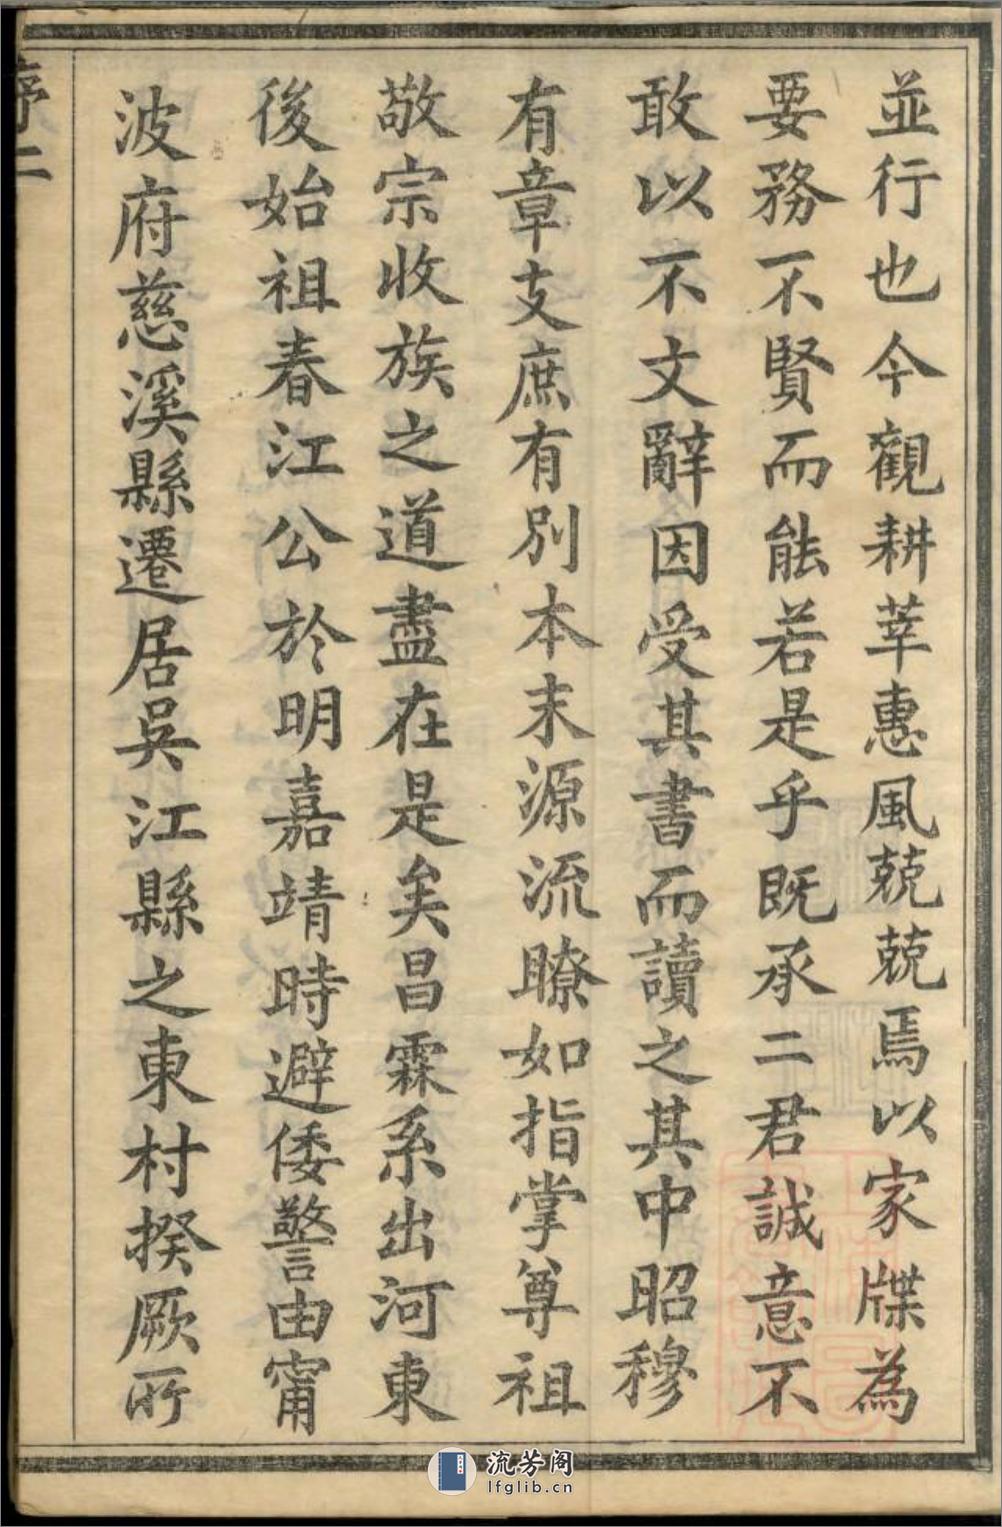 並行也今觀耕莘惠風兢兢焉以家牒為
要務不賢而能若是乎既承二君誠意不
敢以不文辭因受其書而讀之其中昭穆
有章支庶有別本末源流瞭如指掌尊祖
敬宗收族之道盡在是矣昌霖系出河東
後始祖春江公於明嘉靖時避倭警由甯
波府慈溪縣遷居吳江縣之東村揆厥所
序二
流芳阁
lfglib.cn